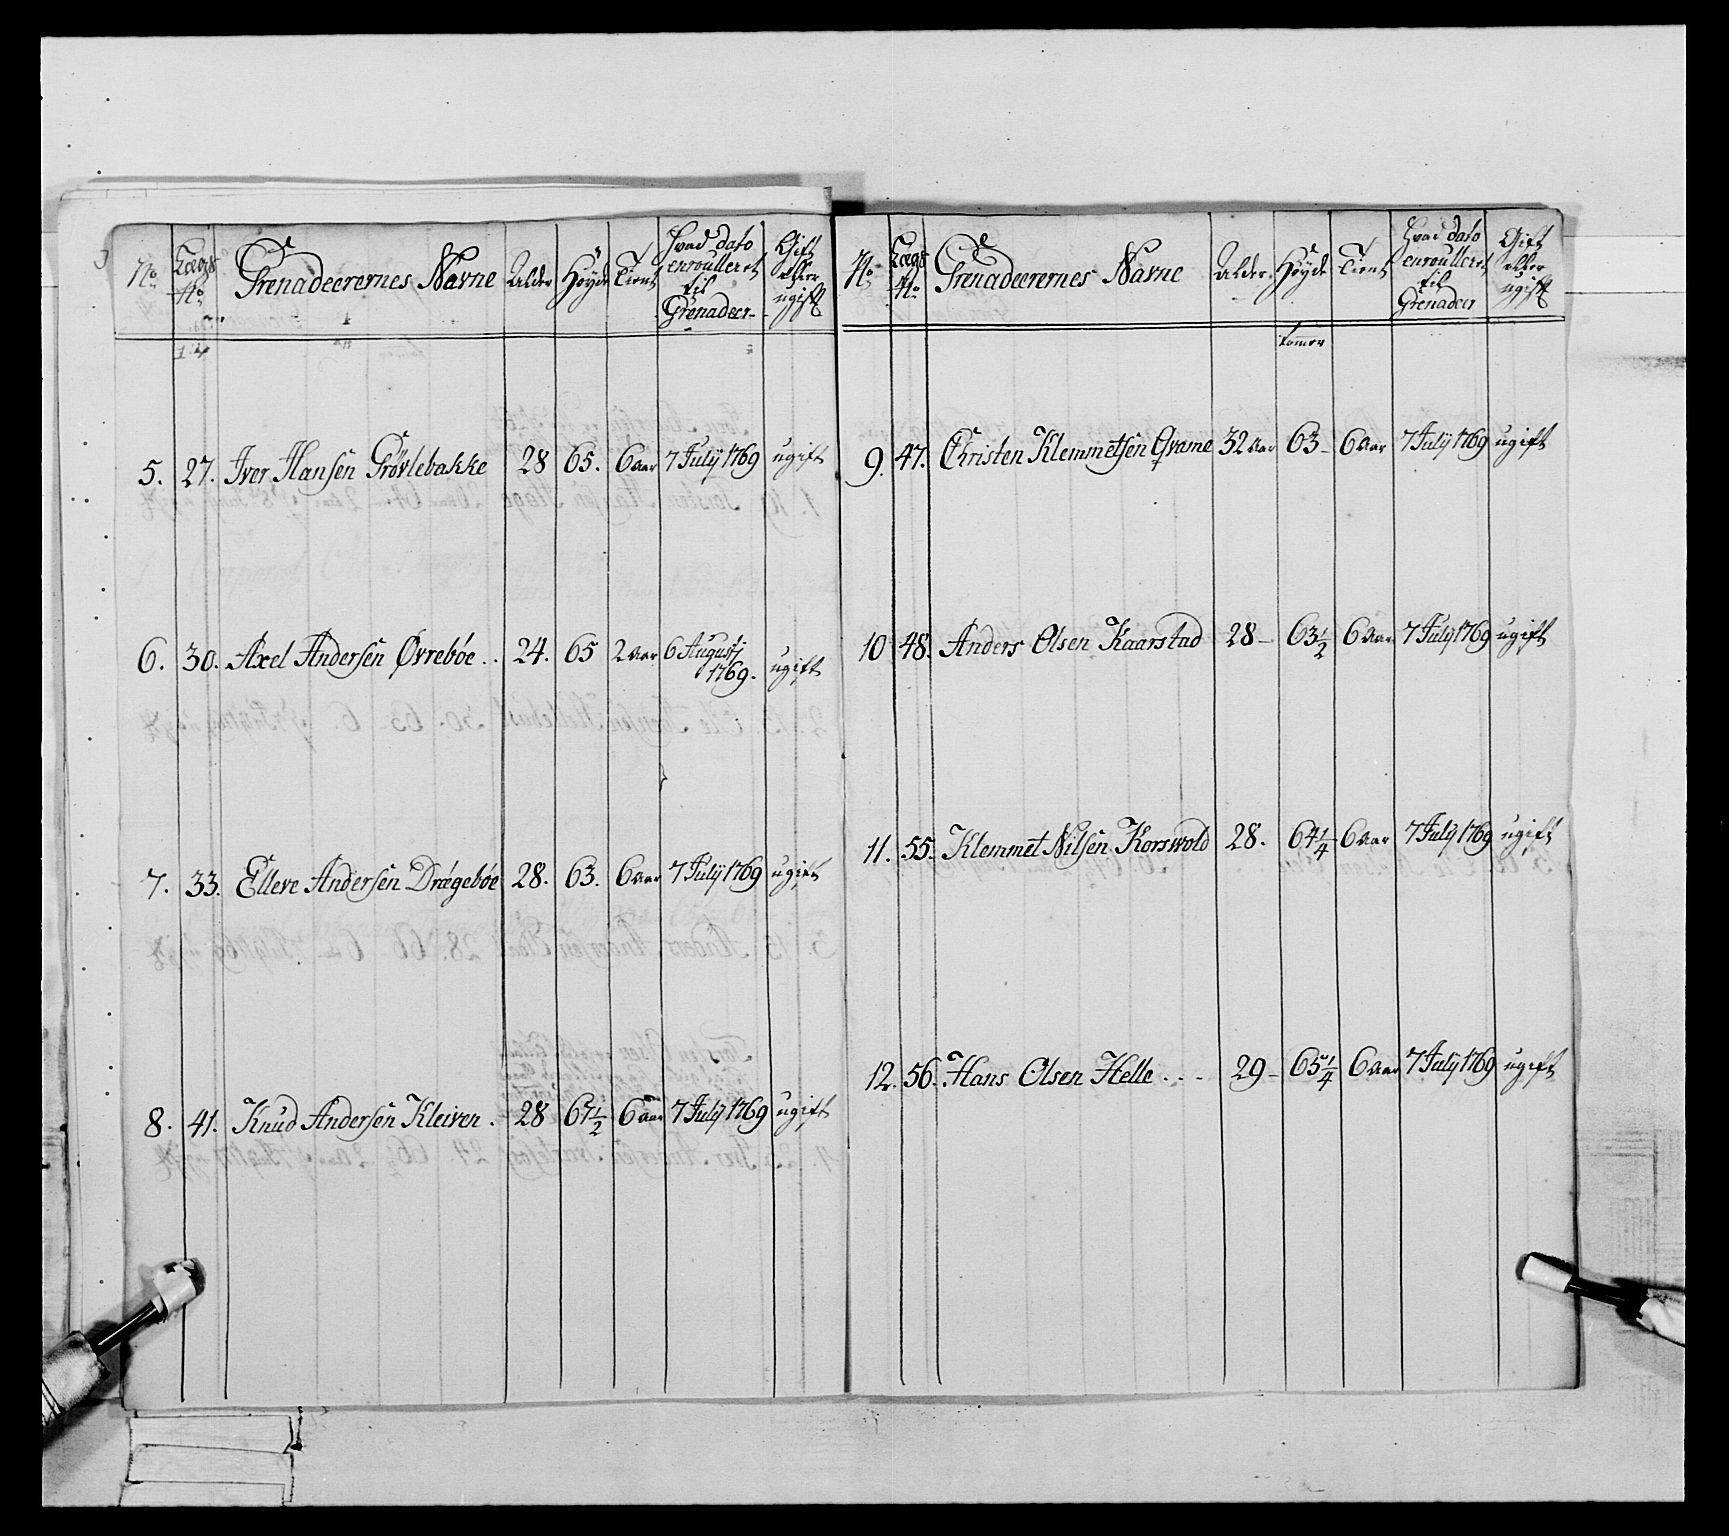 No Lægs No Grenadeerernes Navne Alder Höyde Tient Hvad dato enroulleret til Grenadeer Gift eller ugift
5. 27. Iver Hansen Grövlebakke 28 65. 6 aar 7 July 1769 ugift
6. 30. Axel Andersen Øvrebøe .. 24. 65 2 aar 6 Augusti 1769. ugift
7. 33. Elleve Andersen Drægebøe 28. 63. 6 aar 7 July 1769 ugift
8. 41. Knud Andersen Kleiven . 28 67 1/2 6 aar 7 July 1769 ugift
No Lægs No Grenadeerernes Navne Alder Höyde Tient Hvad dato enroulleret til Grenadeer Gift eller ugift
tommer
9. 47. Christen Klemmetsen Qvame 32 aar 63 - 6 aar 7 July 1769 ugift
10 48. Anders Olsen Kaarstad 28 - 63 1/2 6 aar 7 July 1769 ugift
11. 55. Klemmet Nilsen Korsvold 28. 64 1/4 6 aar 7 July 1769 ugift
12. 56. Hans Olsen Helle . - - 29 - 65 1/4 6 aar 7 July 1769 ugift